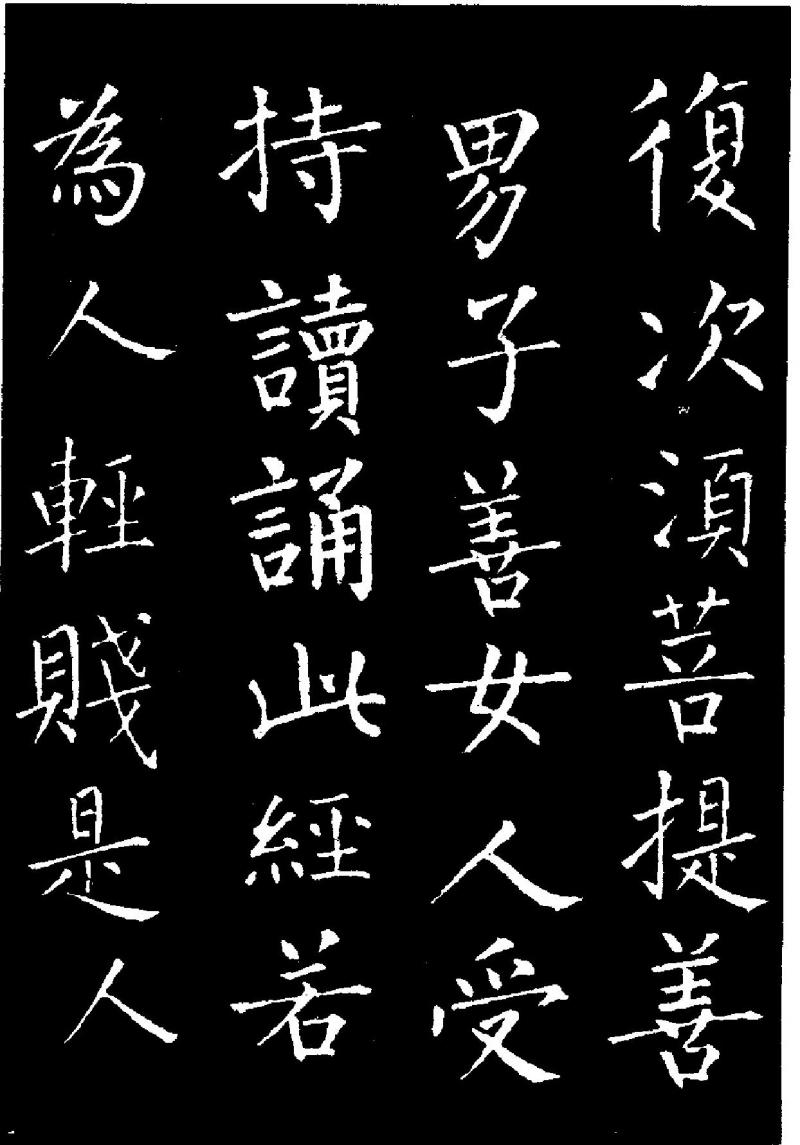 復次須菩提善
男子善女人受
持讀誦此經若
為人輕賤是人